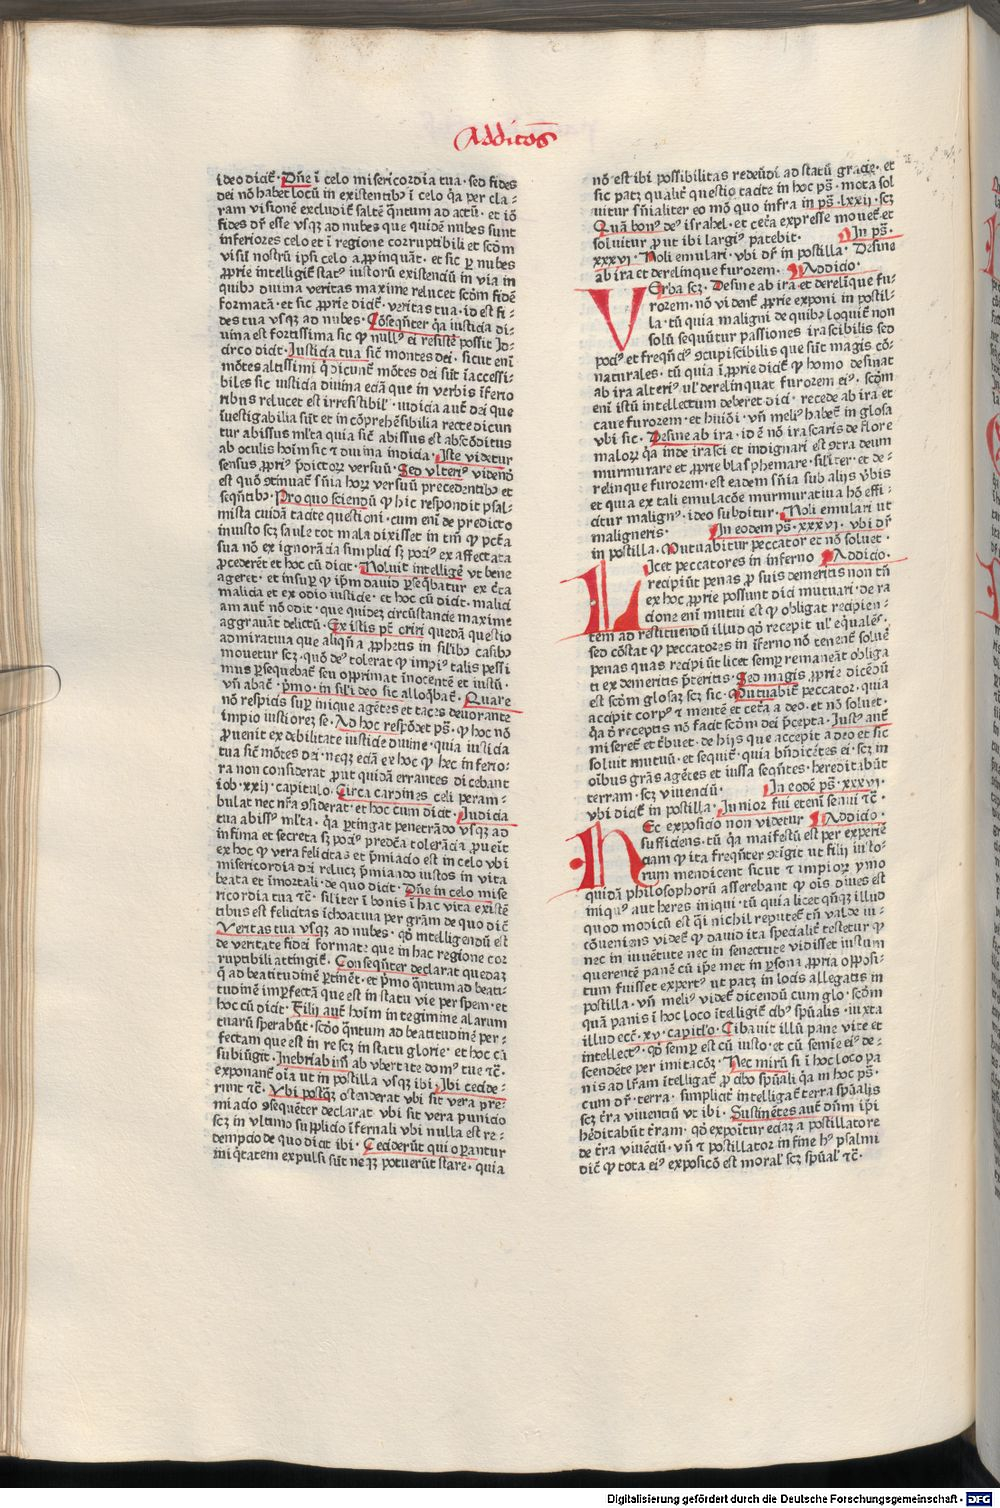 Additõs
ideo dicit̃ · Dñe ĩ celo misericordia tua · sed fides
dei nõ habet locũ in existentibꝰ ĩ celo q̃a per cla-
ram visionẽ excludit̃ saltẽ q̃ntum ad actũ · et iõ
fides dr̃ esse vsqꝫ ad nubes que quidẽ nubes sunt
inferiores celo et ĩ regione corruptibili et scõm
visũ nostrũ ipsi celo aꝓpinquãt · et sic ꝑ nubes
ꝓprie intelligit̃ statꝰ iustorũ existenciũ in via in
quibꝫ diuina veritas maxime relucet scõm fidẽ
formatã · et sic ꝓprie dicit̃ · veritas tua · id est fi-
des tua vsqꝫ ad nubes · Cõseq̃nter q̃a iusticia di-
uina est fortissima sic ꝙ nullꝰ ei resistẽ possit Id-
circo dicit · Justicia tua sic̃ montes dei · sicut enĩ
mõtes altissimi q̃ dicunt̃ mõtes dei sũt ĩaccessi-
biles sic iusticia diuina eciã que in verbis ĩferio
ribus relucet est irresistibilꝭ · iudicia aut̃ dei que
ĩuestigabilia sũt et in cõprehẽsibilia recte dicun
tur abissus ml̃ta quia sic̃ abissus est abscõditus
ab oculis hoĩm sic ⁊ diuina iudicia · Iste videtur
sensus ꝓpriꝰ p̃dictoꝝ versuũ · Sed vlteriꝰ vidend̃
est quõ ꝯtinuat̃ s̃nia horꝝ versuũ precedentibꝫ et
seq̃ntibꝫ · Pro quo sciendũ ꝙ hic respondit psal-
mista cuidã tacite questioni · cum enĩ de predicto
iniusto scꝫ saule tot mala dixisset in tm̃ ꝙ pct̃a
sua nõ ex ignorãcia simplici sꝫ pociꝰ ex affectata
ꝓcederẽt et hoc cũ dicit · Noluit intelligẽ vt bene
ageret · et insuꝑ ꝙ ip̃m dauid ꝑseq̃batur ex c̃ta
malicia et ex odio iusticie · et hoc cũ dicit · malici
am aut̃ nõ odit · que quidez circũstancie maxime
aggrauãt delictũ · Ex istis pt̃ oriri quedã questio
admiratiua que aliqñ a ꝓphetis in sil̃ibꝫ casibꝫ
mouetur scꝫ · quõ deꝰ tolerat ꝙ impiꝰ talis pessi
mus ꝑsequebat̃ seu opprimat ĩnocentẽ et iustũ ·
vñ abac̃ · p̃mo · in sil̃i deo sic alloq̃bat̃ · Quare
nõ respicis suꝑ inique agẽtes et taces deuorante
impio iustiorẽ se · Ad hoc respõdet ps̃ · ꝙ hoc nõ
ꝓuenit ex debilitate iusticie diuine · quia iusticia
tua sic̃ mõtes dei · neqꝫ eciã ex hoc ꝙ hec inferio-
ra non considerat ꝓut quidã errantes dicebant
iob · xxii · capitulo · Circa cardines celi peram-
bulat nec nr̃a ꝯsiderat · et hoc cum dicit · Judicia
tua abissꝰ ml̃ta · q̃a ꝑtingat penetrãdo vsqꝫ ad
infima et secreta sꝫ pociꝰ predc̃a tolerãcia ꝓueĩt
ex hoc ꝙ vera felicitas et p̃miacio est in celo vbi
misericordia dei relucꝫ p̃miando iustos in vita
beata et ĩmortali · de quo dicit · Dñe in celo mise
ricordia tua ⁊c̃ · sil̃iter ĩ bonis ĩ hac vita existẽ
tibus est felicitas ĩchoatiua per gr̃am de quo dic̃
Veritas tua vsqꝫ ad nubes · qõ intelligendũ est
de veritate fidei format̃ que in hac regione cor
ruptibili attingit̃ · Conseq̃nter declarat quedaꝫ
q̃ ad beatitudinẽ ꝑtinẽt · et p̃mo q̃ntum ad beati-
tudinẽ imꝑfectã que est in statu vie per spem · et
hoc cũ dicit · Filii aut̃ hoĩm in tegimine alarum
tuarũ sperabũt · scõo q̃ntum ad beatitudinẽ per-
fectam que est in re scꝫ in statu glorie · et hoc cũ
subiũgit · Inebriabũt̃ ab vbertate domꝰ tue ⁊c̃ ·
exponant̃ oĩa vt in postilla vsqꝫ ibi · Ibi cecide-
runt ⁊c̃ · Vbi postq̃ꝫ ostenderat vbi sit vera pre-
miacio ꝯsequẽter declarat vbi sit vera punicio
scꝫ in vltimo supplicio ĩfernali vbi nulla est re-
dempcio de quo dicit ibi · Ceciderũt qui oꝑantur
ini q̃tatem expulsi sũt ne qꝫ potuerũt stare · quia
nõ est ibi possibilitas redeũdi ad statũ gracie · et
sic patꝫ qualit̃ questio tacite in hoc ps̃ · mota sol
uitur s̃nialiter eo mõ quo infra in ps̃ · lxxii · scꝫ
Quã bonꝰ deꝰ israhel · et cet̃a expresse mouet̃ et
soluitur ꝓut ibi largiꝰ patebit · In ps̃ ·
xxxvi · Noli emulari · vbi dr̃ in postilla · Desine
ab ira et derelinque furorem · Addicio ·
VErba scꝫ · Desine ab ira et derelĩque fu-
rorem · nõ vident̃ ꝓprie exponi in postil-
la · tũ quia maligni de quibꝫ loquit̃ non
solũ sequũtur passiones irascibilis sed
pociꝰ et freq̃nciꝰ ꝯcupiscibilis que sũt magis cõ-
naturales · tũ quia ĩꝓprie dicit̃ ꝙ homo desinat
ab ira alteriꝰ vel̃ derelinquat furorem eiꝰ · scõm
enĩ istũ intellectum deberet dici · recede ab ira et
caue furorem · et hꝰiõi · vñ meliꝰ habet̃ in glosa
vbi sic · Desine ab ira · id ẽ nõ irascaris de flore
maloꝝ q̃a inde irasci et indignari est ꝯtra deum
murmurare et ꝓprie blasphemare · sil̃iter · et de-
relinque furorem · est eadem s̃nia sub alijs ṽbis
et quia ex tali emulacõe murmuratiua hõ effi-
citur malignꝰ · ideo subditur · Noli emulari ut
maligneris · In eodem ps̃ · xxxvi · vbi dr̃
in postilla · Mutuabitur peccator et nõ soluet ·
LIcet peccatores in inferno Addicio ·
recipiũt penas ꝓ suis demeritis non tñ
ex hoc ꝓprie possunt dici mutuari · de ra
cione enĩ mutui est ꝙ obligat recipien-
tem ad restituendũ illud qõ recepit ul̃ equalẽ ·
sed cõstat ꝙ peccatores in ĩferno nõ tenent̃ soluẽ
penas quas recipiũt licet semꝑ remaneãt obliga
ti ex demeritis p̃teritis · Sed magis ꝓprie dicẽdũ
est scõm glosaꝫ scꝫ sic · Mutuabit̃ peccator · quia
accipit corpꝰ ⁊ mentẽ et cet̃a a deo · et nõ soluet ·
q̃a d̃ receptis nõ facit scõm dei p̃cepta · Justꝰ aut̃
miseret̃ et t̃buet · de hijs que accepit a deo et sic
soluit mutuũ · et sequit̃ · quia bñdicẽtes ei · scꝫ in
oĩbus gr̃as agẽtes et iussa seq̃ntes · hereditabũt
terram · scꝫ viuenciũ · In eodẽ ps̃ · xxxvi ·
vbi dicit̃ in postilla · Junior fui etenĩ senui ⁊c̃ ·
HEc exposicio non videtur Addicio ·
sufficiens · tũ q̃a maifestũ est per experiẽ
ciam ꝙ ita freq̃nter ꝯtigit ut filii iusto-
rum mendicent sicut ⁊ impioꝝ ymo
quidã philosophorũ asserebant ꝙ oĩs diues est
iniquꝰ aut heres iniqui · tũ quia licet qñqꝫ illud
quod modicũ est q̃i nichil reputet̃ tñ valde in-
cõueniens videt̃ ꝙ dauid ita specialit̃ testetur ꝙ
nec in iuuẽtute nec in senectute vidisset iustum
querentẽ panẽ cũ ip̃e met in ꝑsona ꝓpria oppost-
tum fuisset expertꝰ ut patꝫ in locis allegatis in
postilla · vñ meliꝰ videt̃ dicendũ cum glo · scõm
quã panis ĩ hoc loco ĩtelligit̃ cibꝰ sp̃ualis · iuxta
illud ecc̃ · xv · capitl̃o · Cibauit illũ pane vite et
intellectꝰ · qõ semꝑ est cũ iusto · et cũ semĩe eiꝰ de-
scendẽte per imitacõꝫ · Nec mirũ si ĩ hoc loco pa
nis ad lr̃am ĩtelligat̃ ꝓ cibo sp̃uali q̃a in hoc ps̃ ·
cum dr̃ · terra · simplicit̃ intelligat̃ terra sp̃ualis
scꝫ t̃ra viuentiũ vt ibi · Sustinẽtes aut̃ dñm ip̃i
hẽditabũt t̃ram · qõ expoĩtur eciaꝫ a postillatore
de t̃ra viuẽciũ · vñ ⁊ postillator in fine hꝰ psalmi
dic̃ ꝙ tota eiꝰ exposicõ est moralꝭ scꝫ sp̃ual̃ ⁊c̃ ·
Digitalisierung gefördert durch die Deutsche Forschungsgemeinschaft - DFG